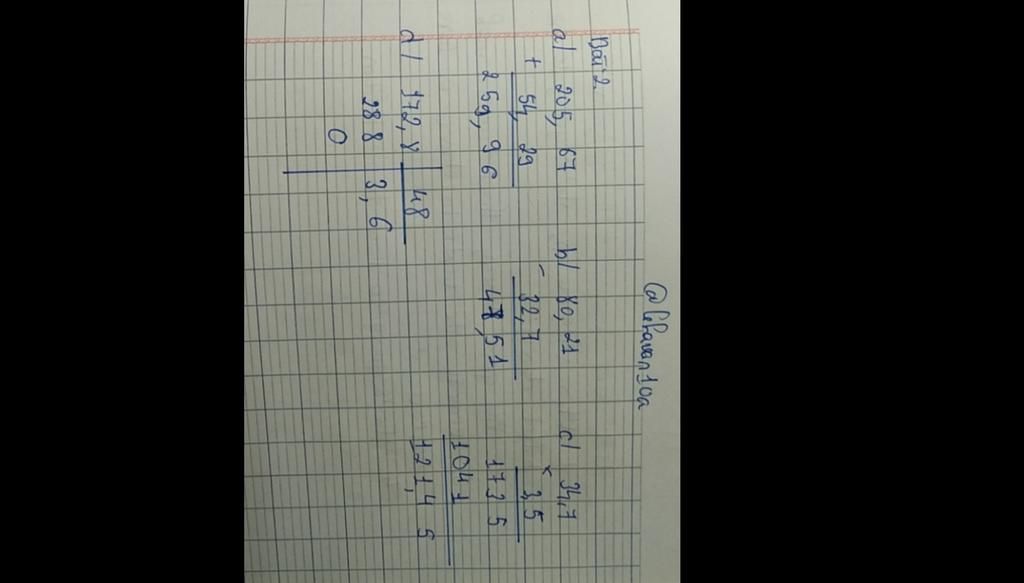 @lehavan10a
Bài 2.
a/ 205,67
+ 54,29
259,96
b/ 80,21
- 32,7
47,51
c/ 34,7
× 3,5
1735
1041
121,45
d/ 172,8 48
288 3,6
0